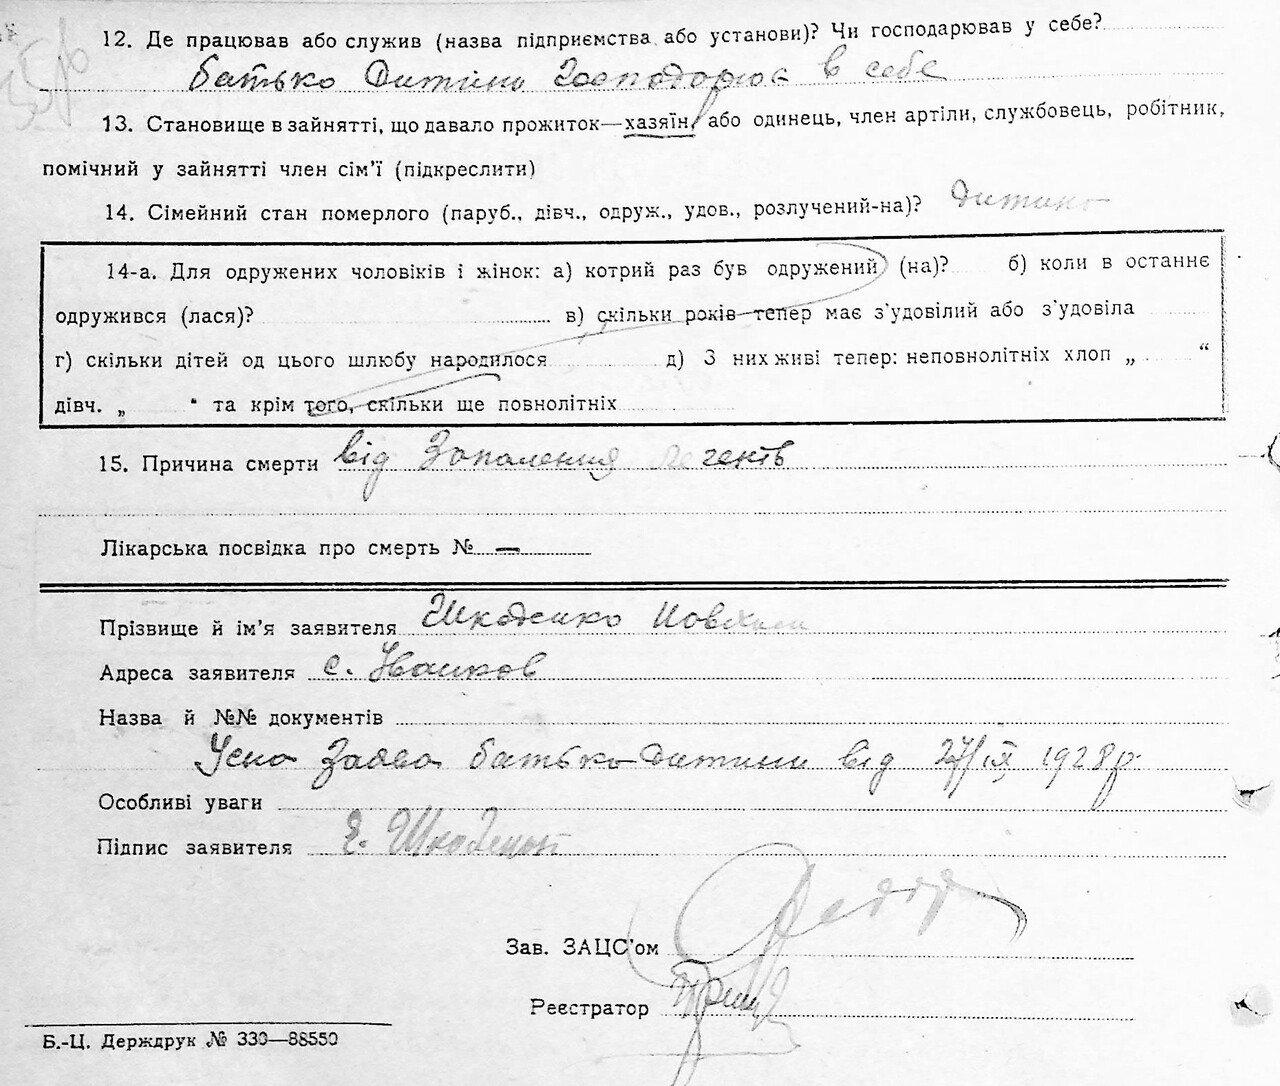 12. Де працював або служив (назва підприємства або установи)? Чи господарював у себе?
батько дитини господорює в себе
13. Становище в зайнятті, що давало прожиток—хазяїн, або одинець, член артіли, службовець, робітник,
помічний у зайнятті член сім'ї (підкреслити)
14. Сімейний стан померлого (паруб., дівч., одруж., удов., розлучений-на)? дитина
14-а. Для одружених чоловіків і жінок: а) котрий раз був одружений (на)? б) коли в останнє
одружився (лася)? в) скільки років тепер має з'удовілий або з'удовіла
г) скільки дітей од цього шлюбу народилося д) З них живі тепер: неповнолітніх хлоп „ “
дівч. „ “ та крім того, скільки ще повнолітніх
15. Причина смерти від Запалення легенів
Лікарська посвідка про смерть № —
Прізвище й ім'я заявителя Шкоденко
Адреса заявителя с. Иванков
Назва й №№ документів
Усна Заява батько дитини від 27/ІХ 1928р.
Особливі уваги
Підпис заявителя Є. Шкоденко
Зав. ЗАЦС'ом
Реєстратор
Б.-Ц. Держдрук № 330—88550